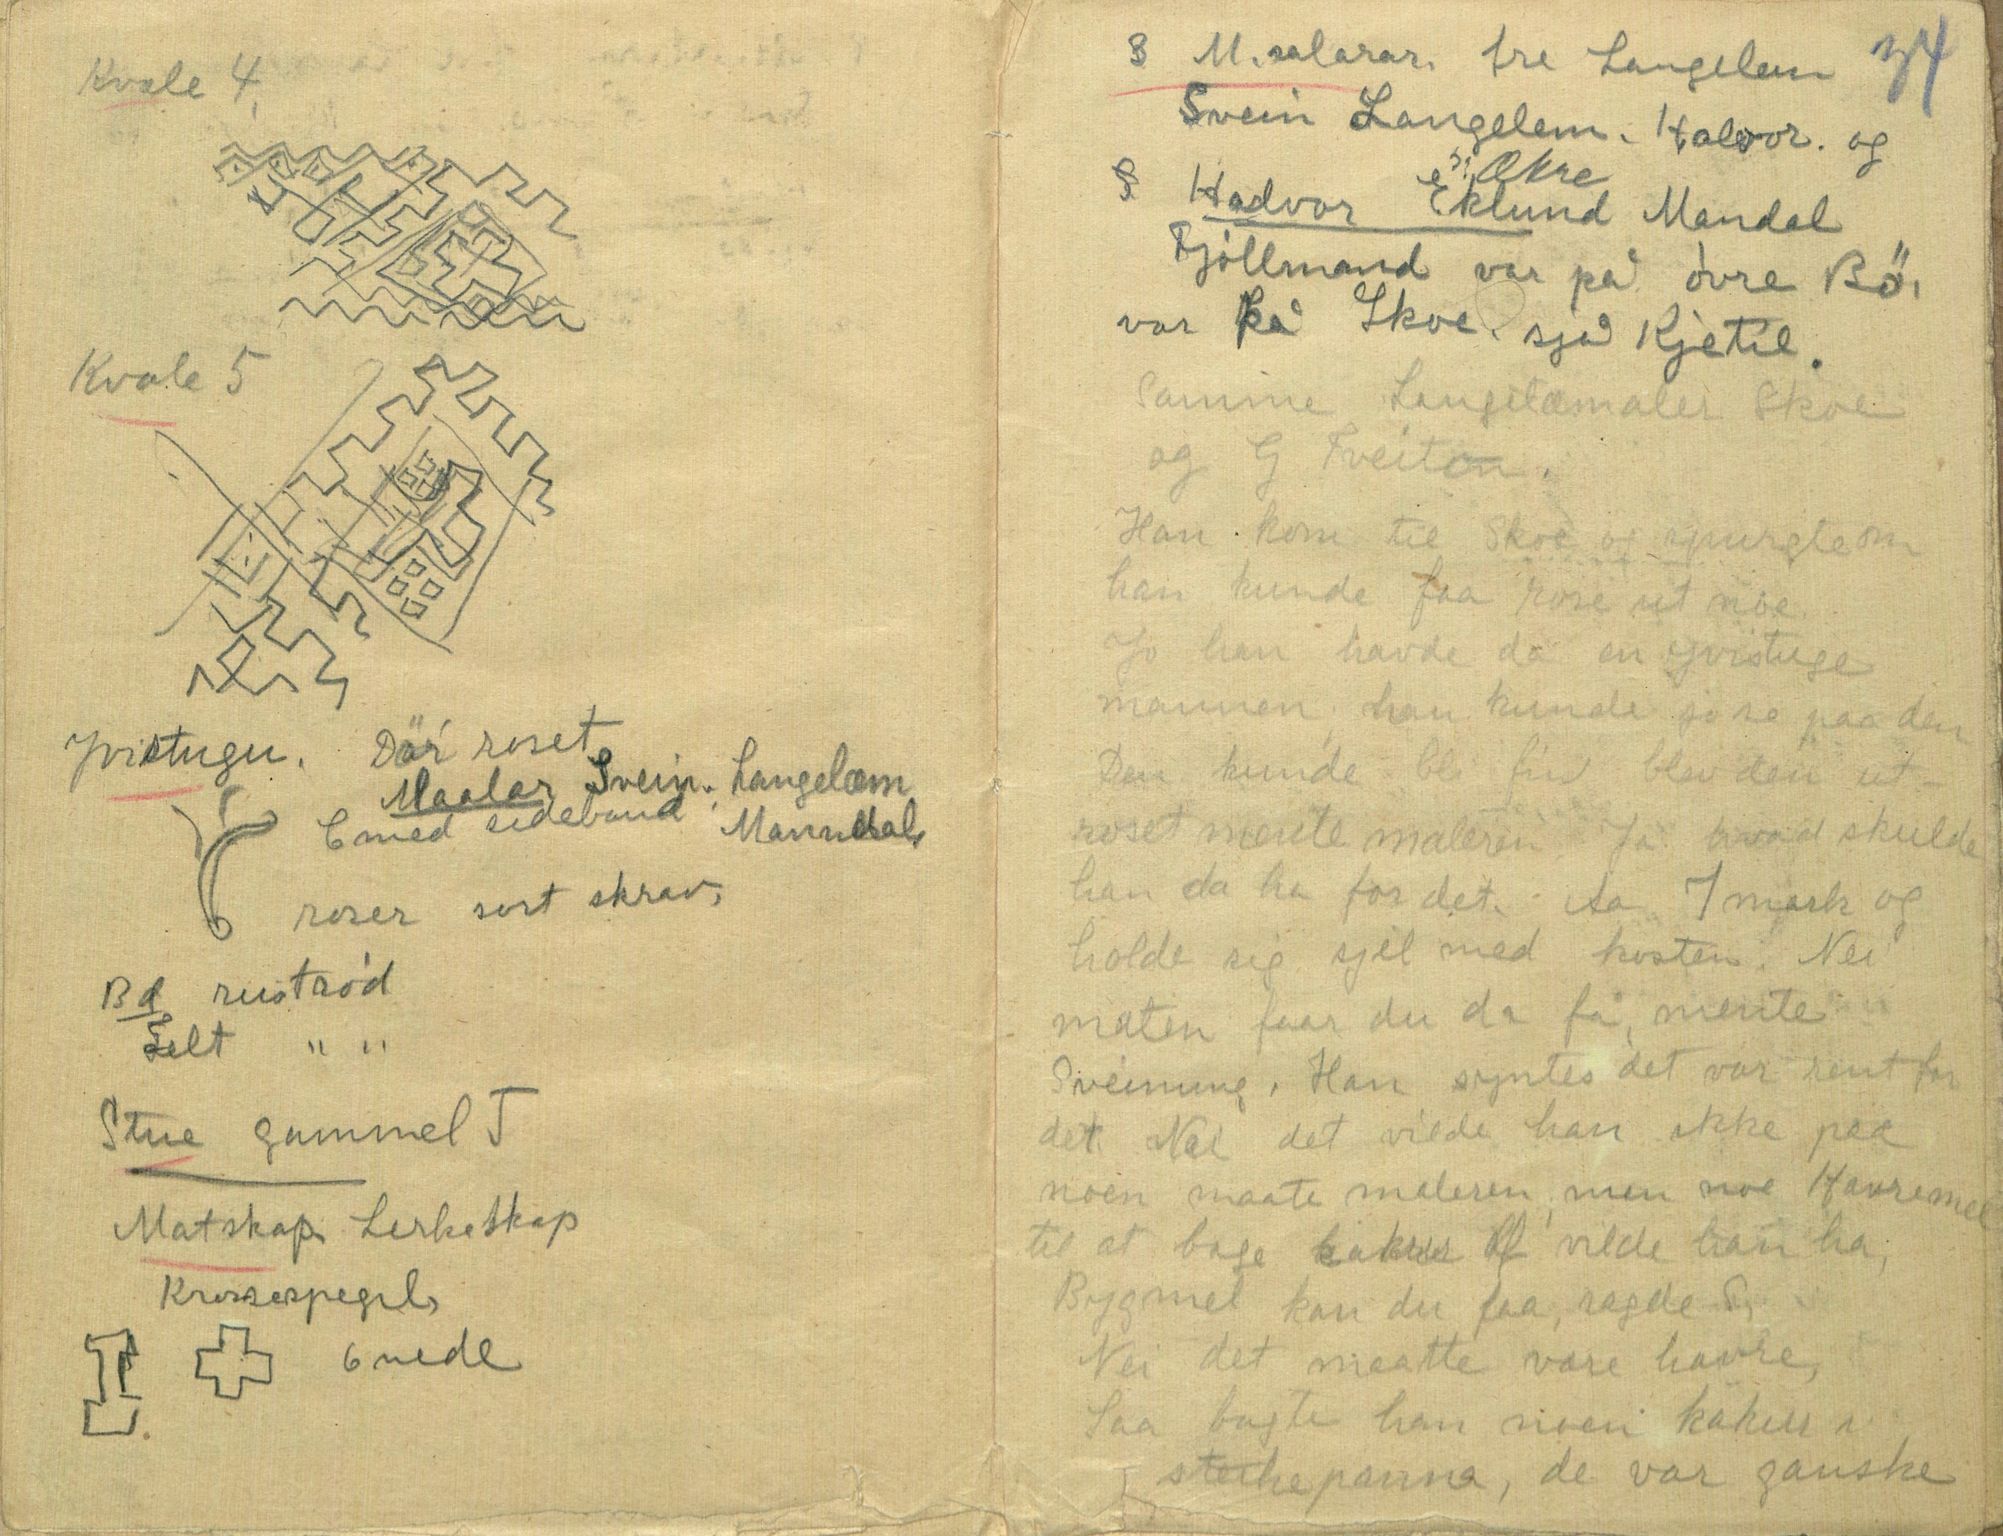 Kvale 4.
Kvale 5
Yvistugu. Dör roset
Maalar Svein. Langelæm
C med sideband Manndal,
roser sort skrav,
Bd rustrød
Felt " "
Stue gammel T
Matskap Lerkeskap
Krossespegil,
6 nede
34
§ M.salarar. fre Langelem
Svein Langelem. Halvor. og
Økre
§ Hadvor Eklund Mandal
Fjöllmand var på övre Bö.
var på Skoe. sjå Kjetil.
Samme Langelæmaler Skoe
og G Tveiton.
Han kom til Skoe og spurgte om
han kunde faa rose ut noe.
Jo han havde da en yvistuge
mannen, han kunde jo se paa den
Den kunde bli fin blev den ut-
roset mente maleren. Ja hvad skulde
han da ha for det. Aa 7 mark og
holde sig sjel med kosten. Nei
maten faar du da få, mente
Sveinung. Han syntes det var rent for
det. Nei det vilde han ikke paa
noen maate maleren, men noe Havremel
til at bage kaker af vilde han ha,
Bygmel kan du faa, sagde S.
Nei det maatte være havre,
Saa bagte han noen kaker i
steikepanna, de var ganske